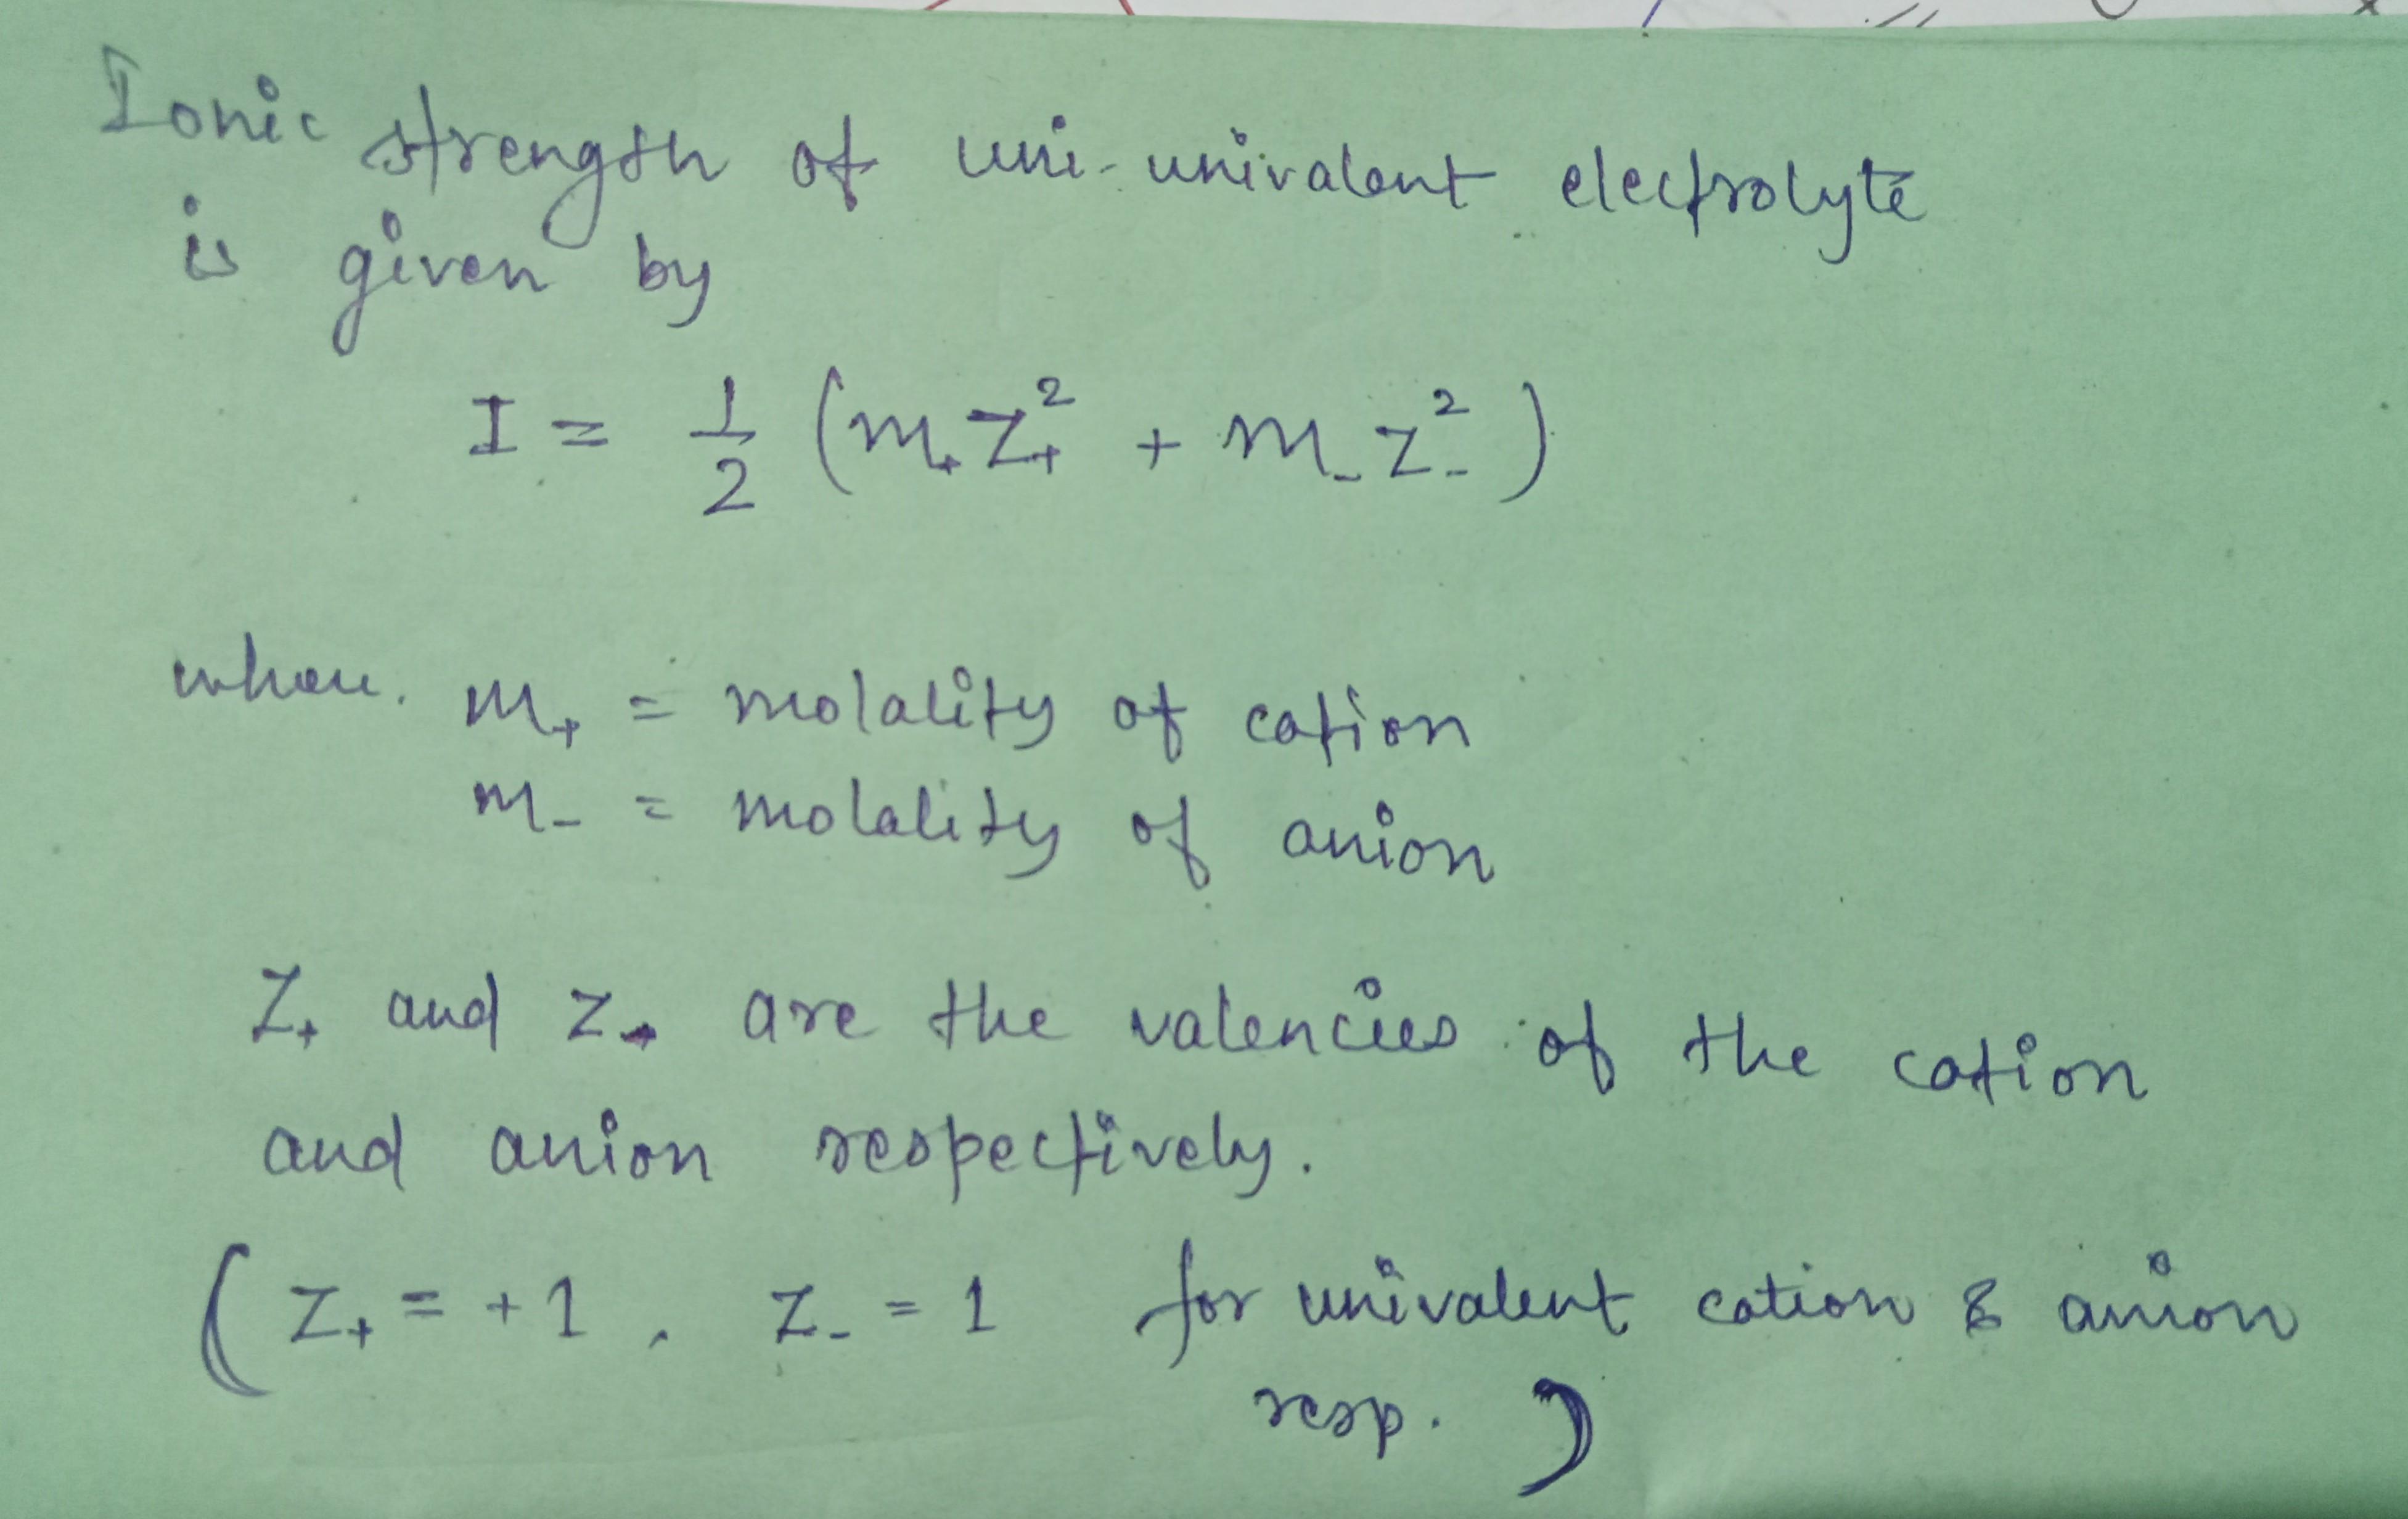 Ionic strength of uni-univalent electrolyte
is given by
I = 1/2 (m₊ Z₊² + m₋ Z₋²)
where. m₊ = molality of cation
m₋ = molality of anion
Z₊ and Z₊ are the valencies of the cation
and anion respectively.
(Z₊ = +1, Z₋ = 1 for univalent cation & anion
resp.)